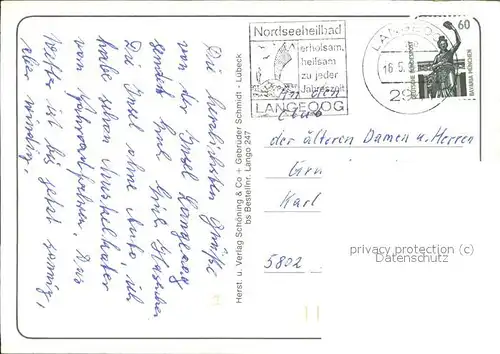 Die herzlichsten Grüße
von der Insel Langeoog
sendet Euch
Die Insel ohne Auto, ich
habe schon Muskelkater
vom Fahrradfahren. Das
Wetter ist bis jetzt sonnig,
aber windig.
Herst. u. Verlag Schöning & Co + Gebrüder Schmidt · Lübeck
bs Bestellnr. Lango 247
Nordseeheilbad
erholsam,
heilsam
zu jeder
Jahreszeit
LANGEOOG
LANGEOOG
16.5.
60
DEUTSCHE BUNDESPOST
BAVARIA MÜNCHEN
An den
Club
der älteren Damen u. Herren
Karl
5802
privacy protection (c)
Datenschutz